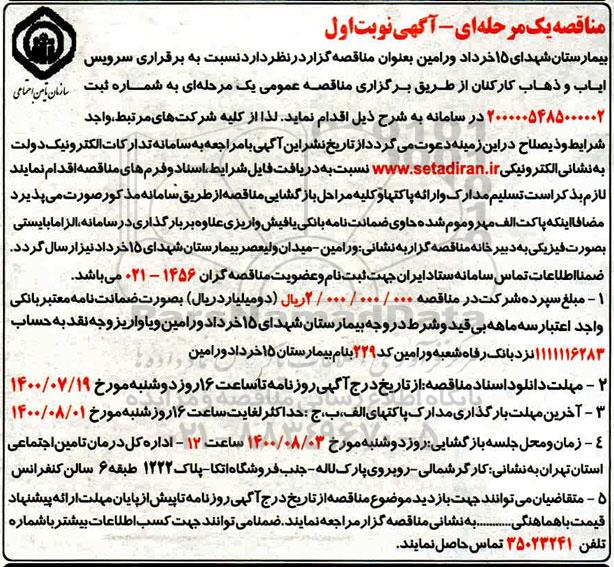 مناقصه یک مرحله‌ای - آگهی نوبت اول
سازمان تامین اجتماعی
بیمارستان شهدای ۱۵ خرداد ورامین بعنوان مناقصه گزار در نظر دارد نسبت به برقراری سرویس
ایاب و ذهاب کارکنان از طریق برگزاری مناقصه عمومی یک مرحله‌ای به شماره ثبت
۲۰۰۰۰۰۵۴۸۵۰۰۰۰۰۲ در سامانه به شرح ذیل اقدام نماید. لذا از کلیه شرکت‌های مرتبط، واجد
شرایط و ذیصلاح در این زمینه دعوت می گردد از تاریخ نشر این آگهی با مراجعه به سامانه تدارکات الکترونیک دولت
به نشانی الکترونیکی www.setadiran.ir نسبت به دریافت فایل شرایط، اسناد و فرم های مناقصه اقدام نمایند
لازم بذکر است تسلیم مدارک و ارائه پاکتها و کلیه مراحل بازگشایی مناقصه از طریق سامانه مذکور صورت می پذیرد
مضافا اینکه پاکت الف مهر و موم شده حاوی ضمانت نامه بانکی یا فیش واریزی علاوه بر بارگذاری در سامانه، الزاما بایستی
بصورت فیزیکی به دبیرخانه مناقصه گزار به نشانی: ورامین - میدان ولیعصر بیمارستان شهدای ۱۵ خرداد نیز ارسال گردد.
ضمنا اطلاعات تماس سامانه ستاد ایران جهت ثبت نام و عضویت مناقصه گران ۱۴۵۶ - ۰۲۱ می باشد.
۱ - مبلغ سپرده شرکت در مناقصه ۲/۰۰۰/۰۰۰/۰۰۰ ریال (دو میلیارد ریال) بصورت ضمانت نامه معتبر بانکی
واجد اعتبار سه ماهه بی قید و شرط در وجه بیمارستان شهدای ۱۵ خرداد ورامین و یا واریز وجه نقد به حساب
۱۱۱۱۱۱۶۲۸۳ نزد بانک رفاه شعبه ورامین کد ۲۲۹ بنام بیمارستان ۱۵ خرداد ورامین
۲ - مهلت دانلود اسناد مناقصه: از تاریخ درج آگهی روزنامه تا ساعت ۱۶ روز دوشنبه مورخ ۱۴۰۰/۰۷/۱۹
۳ - آخرین مهلت بارگذاری مدارک پاکتهای الف، ب، ج: حداکثر لغایت ساعت ۱۶ روز شنبه مورخ ۱۴۰۰/۰۸/۰۱
۴ - زمان و محل جلسه بازگشایی: روز دوشنبه مورخ ۱۴۰۰/۰۸/۰۳ ساعت ۱۲ - اداره کل درمان تامین اجتماعی
استان تهران به نشانی: کارگر شمالی - روبروی پارک لاله - جنب فروشگاه اتکا - پلاک ۱۲۲۲ طبقه ۶ سالن کنفرانس
۵ - متقاضیان می توانند جهت بازدید موضوع مناقصه از تاریخ درج آگهی روزنامه تا پیش از پایان مهلت ارائه پیشنهاد
قیمت با هماهنگی ............ به نشانی مناقصه گزار مراجعه نمایند. ضمنا می توانند جهت کسب اطلاعات بیشتر با شماره
تلفن ۳۵۰۲۳۲۴۱ تماس حاصل نمایند.